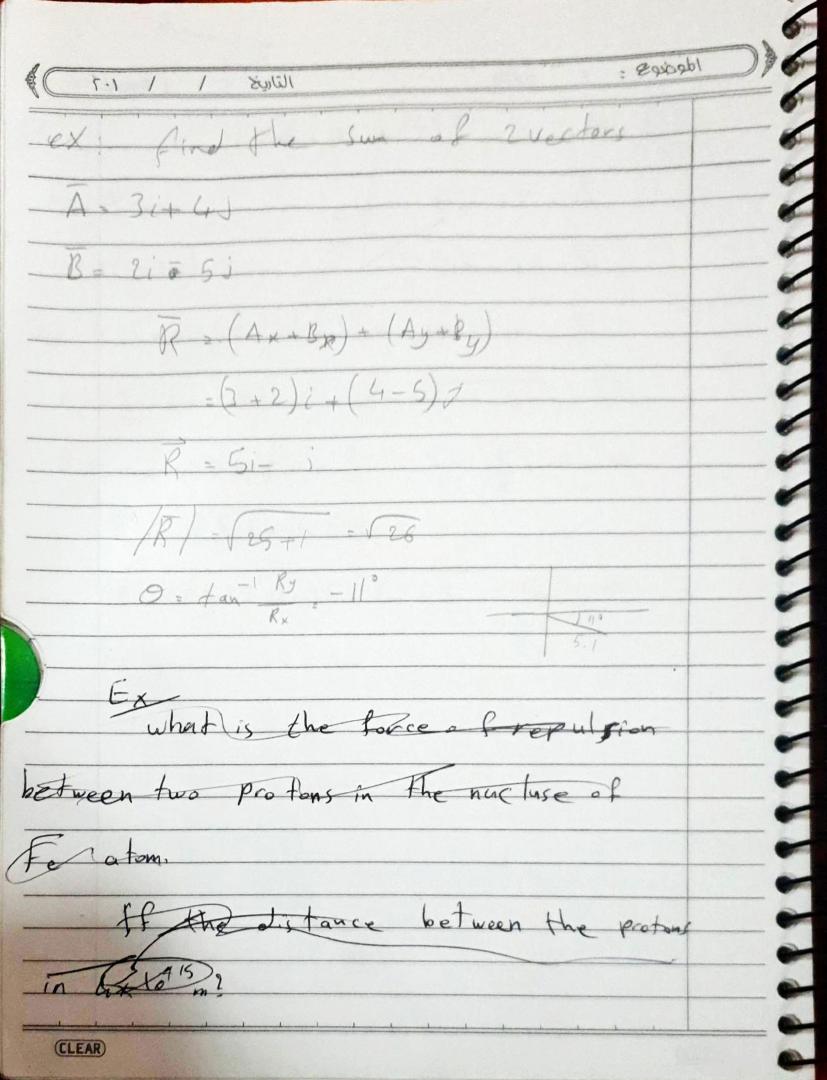 الموضوع :
التاريخ / / ٢٠١
ex: find the sum of 2 vectors
A̅ = 3i + 4j
B̅ = 2i - 5j
R̅ = (Ax + Bx) + (Ay + By)
= (3 + 2)i + (4 - 5)j
R⃗ = 5i - j
|R̅| = √25+1 = √26
θ = tan⁻¹ Ry/Rx = -11°
11°
5.1
Ex
what is the force of repulsion
between two protons in the nucluse of
Fe atom.
If the distance between the protons
in 4x10 15 m?
CLEAR